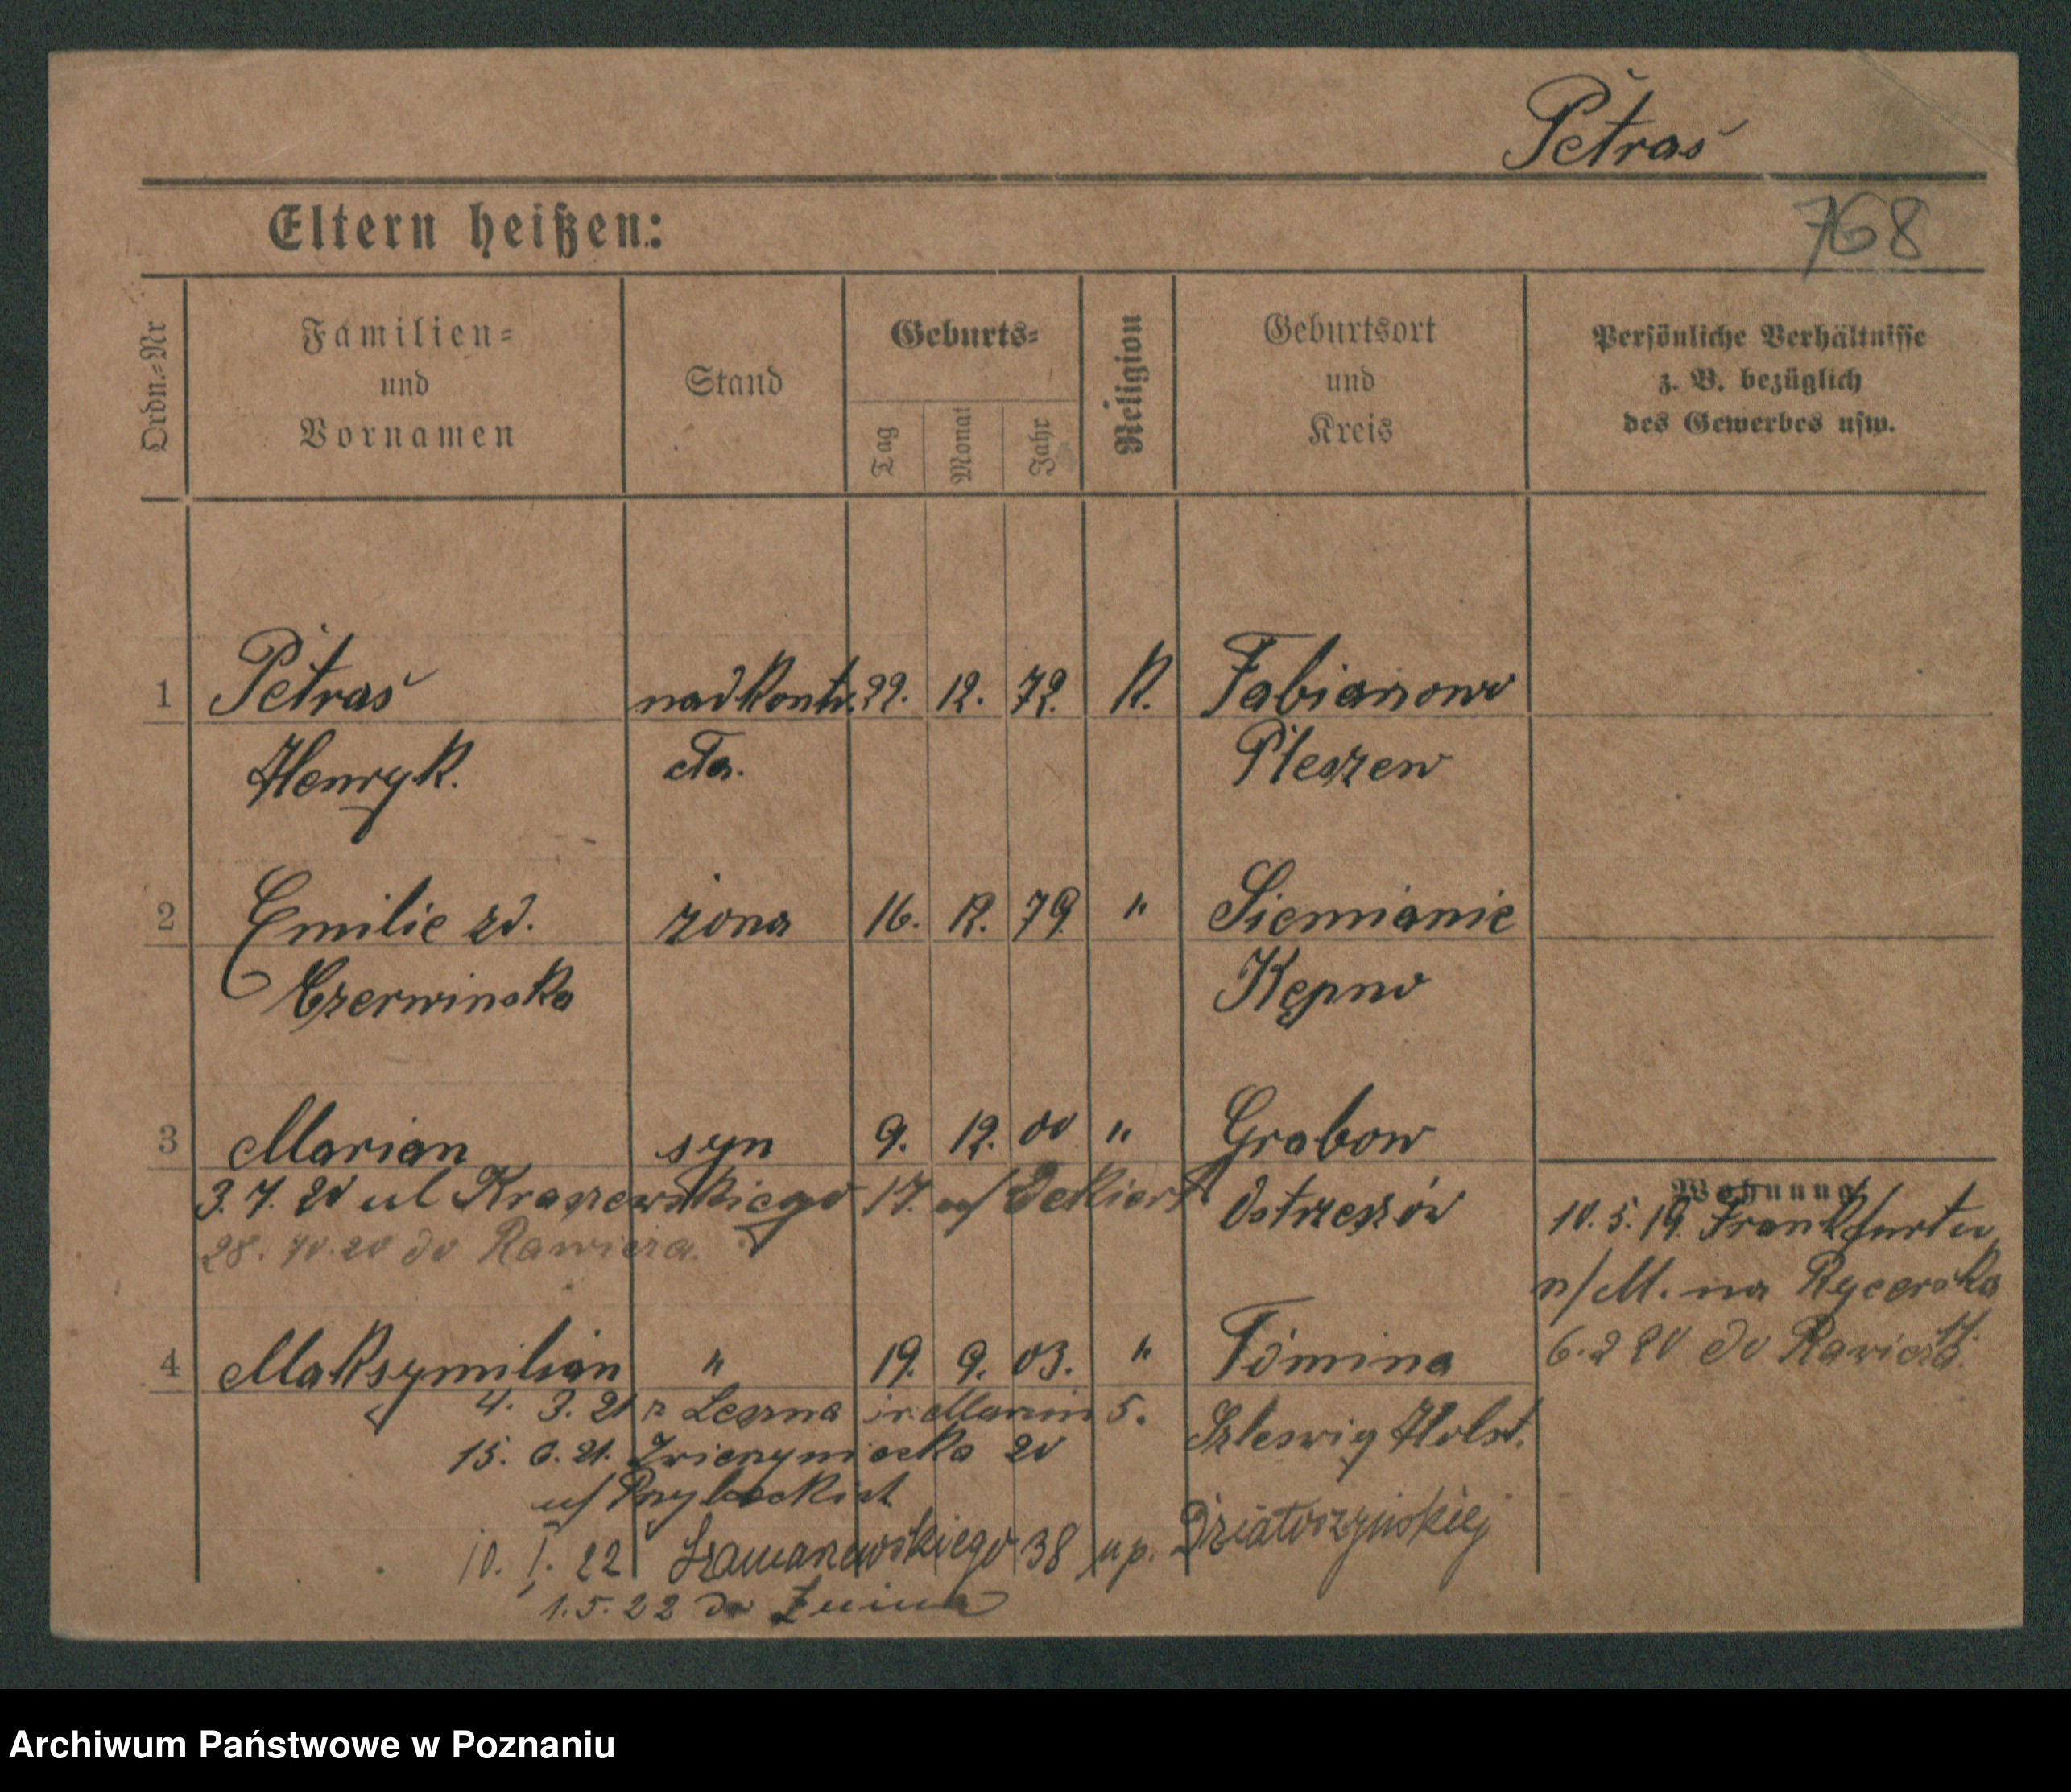 Petraś
Eltern heißen:
768
Ordn.=Nr
Familien=
und
Vornamen
Stand
Geburts=
Tag
Monat
Jahr
Religion
Geburtsort
und
Kreis
Persönliche Verhältnisse
z. B. bezüglich
des Gewerbes usw.
1 Petraś nadkontr. 22. 12. 72. R. Fabianowo
Henryk. Pleszew
2 Emilie zd. żona 16. 12. 79. " Siemianic
Czerwinska Kępno
3 Marian syn 9. 12. 00 " Grabow
3. 7. 20 ul Kraszewskiego 17. Ostrzeszów
28. 10. 20 do Rawicza.
Wohnung
10. 5. 19. Frankfurtu
n/M. na Rycerska
17.
6. 2 20 do Rawicza.
4 Maksymilian " 19. 9. 03. "
4. 3. 21 z Leszna 5.
Szleswig Holst.
15. 6. 21. Zwierzyniecka 20
10. I. 22 Szamarzewskiego 38 u p. Działoszyńskiej
1. 5. 22 do Żnina
Archiwum Państwowe w Poznaniu